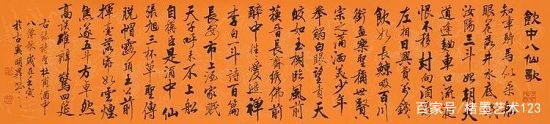 飲中八仙歌
知章騎馬似乘船
眼花落井水底眠
汝陽三斗始朝天
道逢麴車口流涎
恨不移封向酒泉
左相日興費萬錢
飲如長鯨吸百川
銜盃樂聖稱避賢
宗之瀟洒美少年
舉觴白眼望青天
皎如玉樹臨風前
蘇晉長齋繡佛前
醉中往往愛逃禪
李白一斗詩百篇
長安市上酒家眠
天子呼來不上船
自稱臣是酒中仙
張旭三杯草聖傳
脫帽露頂王公前
揮毫落紙如雲煙
焦遂五斗方卓然
高談雄辯驚四筵
右錄詩聖杜甫酒中
八僊歌
百家号/楮墨艺术123